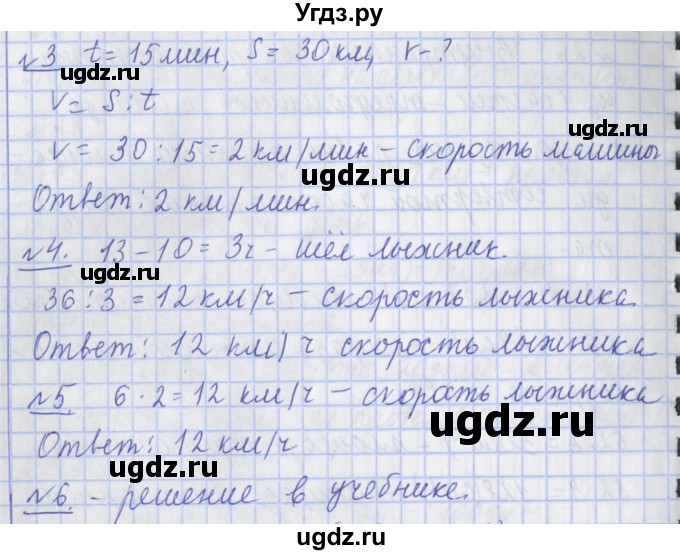 Угдз.ру
№3 t = 15 мин, S = 30 км, V - ?
ugdz.ru
ugdz.ru
V = S : t
ugdz.ru
V = 30 : 15 = 2 км/мин - скорость машины
Ответ: 2 км/мин.
ugdz.ru
№4. 13 - 10 = 3ч - шёл лыжник.
ugdz.ru
36 : 3 = 12 км/ч - скорость лыжника
ugdz.ru
Ответ: 12 км/ч скорость лыжника
№5 6 · 2 = 12 км/ч - скорость лыжника
ugdz.ru
ugdz.ru
Ответ: 12 км/ч
№6. - решение в учебнике.
ugdz.ru
ugdz.ru